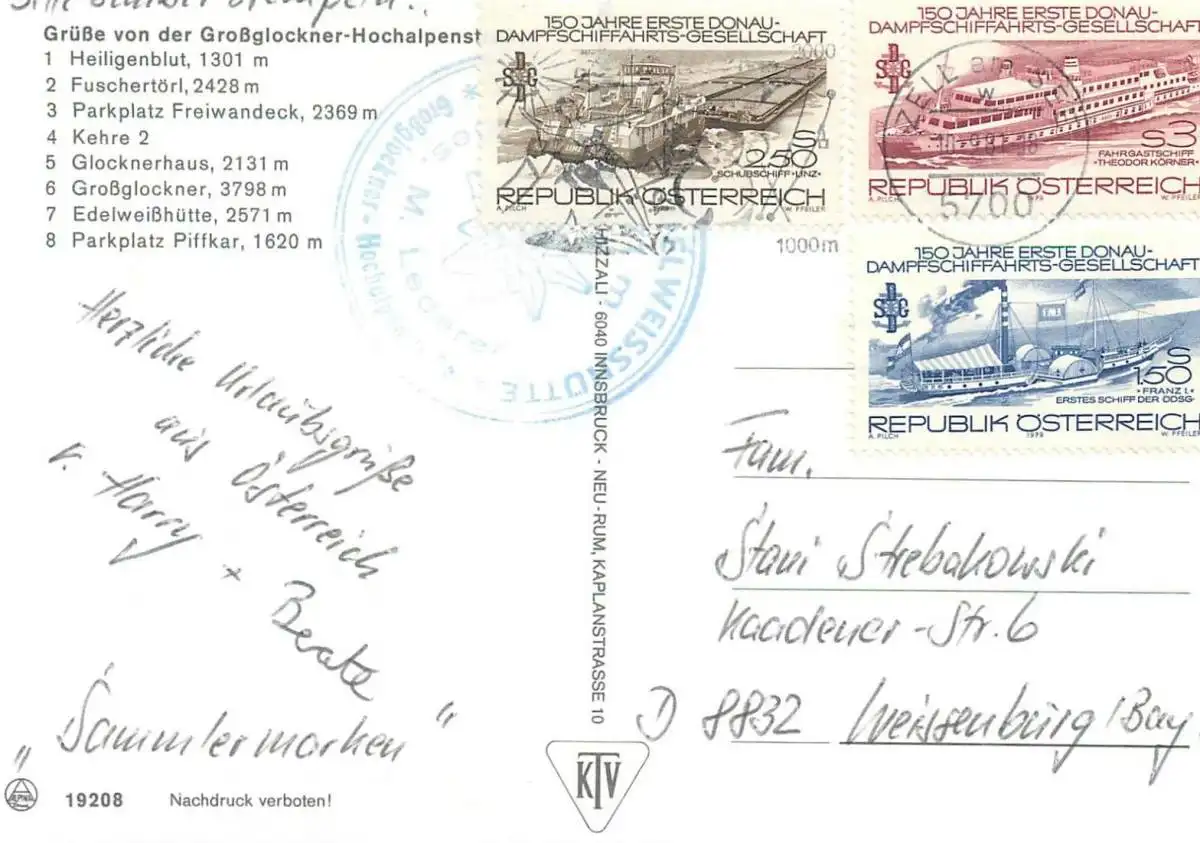 Bitte sauber stempeln!!
Grüße von der Großglockner-Hochalpenst
1 Heiligenblut, 1301 m
2 Fuschertörl, 2428 m
3 Parkplatz Freiwandeck, 2369 m
4 Kehre 2
5 Glocknerhaus, 2131 m
6 Großglockner, 3798 m
7 Edelweißhütte, 2571 m
8 Parkplatz Piffkar, 1620 m
Herzliche Urlaubsgrüße
aus Österreich
v. Harry + Beate
„Sammlermarken"
19208 Nachdruck verboten!
150 JAHRE ERSTE DONAU-
DAMPFSCHIFFAHRTS-GESELLSCHAFT
DDSG
S 2.50
SCHUBSCHIFF ·LINZ·
REPUBLIK ÖSTERREICH
A. PILCH 1979 W. PFEILER
150 JAHRE ERSTE DONAU-
DAMPFSCHIFFAHRTS-GESELLSCHAFT
DDSG
S3
FAHRGASTSCHIFF
·THEODOR KÖRNER·
REPUBLIK ÖSTERREICH
A. PILCH 1979 W. PFEILER
150 JAHRE ERSTE DONAU-
DAMPFSCHIFFAHRTS-GESELLSCHAFT
DDSG
S 1.50
·FRANZ I.·
ERSTES SCHIFF DER DDSG
REPUBLIK ÖSTERREICH
A. PILCH 1979 W. PFEILER
ZELL AM
5700
3000
1000m
EDELWEISSHÜTTE
M. Lederer
Großglockner-Hochalpen
HIZZALI - 6040 INNSBRUCK - NEU-RUM, KAPLANSTRASSE 10
KTV
Fam.
Stani Strebakowski
Kaadener-Str. 6
D 8832 Weissenburg/Bay.